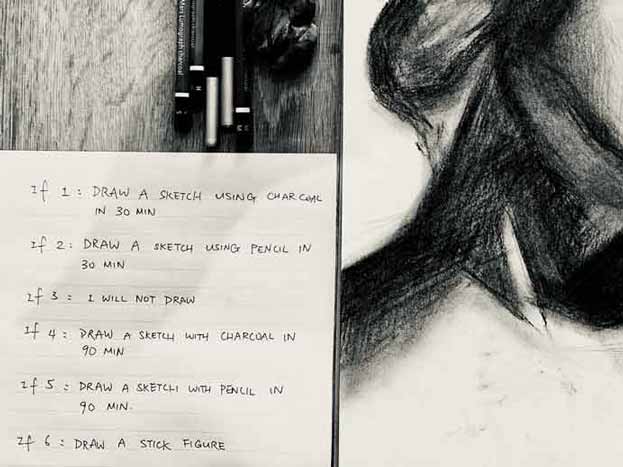 Mars Lumograph charcoal
If 1 : DRAW A SKETCH USING CHARCOAL
IN 30 MIN
If 2 : DRAW A SKETCH USING PENCIL IN
30 MIN
If 3 : I WILL NOT DRAW
If 4 : DRAW A SKETCH WITH CHARCOAL IN
90 MIN
If 5 : DRAW A SKETCH WITH PENCIL IN
90 MIN.
If 6 : DRAW A STICK FIGURE